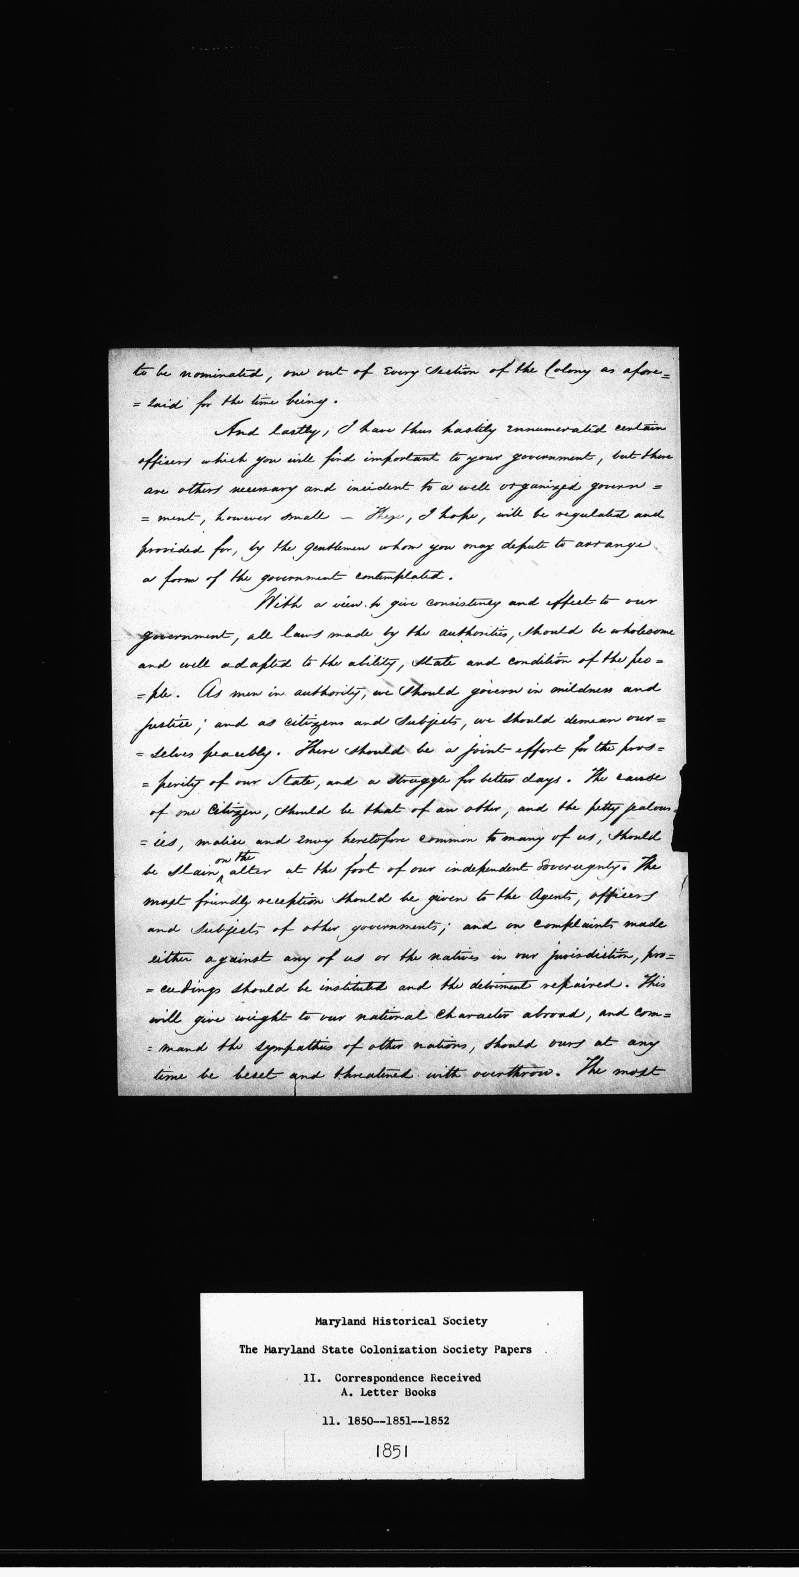 to be nominated, one out of Every Section of the Colony as afore=
=said for the time being.
And lastly, I have thus hastily ennumerated certain
officers which you will find important to your government, but there
are others necessary and incident to a well organized govern=
=ment, however small — These, I hope, will be regulated and
provided for, by the gentlemen whom you may depute to arrange
a form of the government contemplated.
With a view to give consistency and effect to our
government, all laws made by the authorities, should be wholesome
and well adapted to the ability, state and condition of the peo=
=ple. As men in authority, we should govern in mildness and
justice; and as citizens and subjects, we should demean our=
=selves peacebly. There should be a joint effort for the pros=
=perity of our State, and a struggle for better days. The cause
of one citizen, should be that of an other, and the petty jealous=
=ies, malice and envy heretofore common to many of us, should
on the
be slain ^ alter at the foot of our independent Sovereignty. The
most friendly reception should be given to the Agents, officers
and subjects of other governments; and on complaints made
either against any of us or the natives in our jurisdiction, pro=
=ceedings should be instituted and the detriment repaired. This
will give weight to our national character abroad, and com=
=mand the sympathies of other nations, should ours at any
time be beset and threatened with overthrow. The most
Maryland Historical Society
The Maryland State Colonization Society Papers
II. Correspondence Received
A. Letter Books
11. 1850--1851--1852
1851